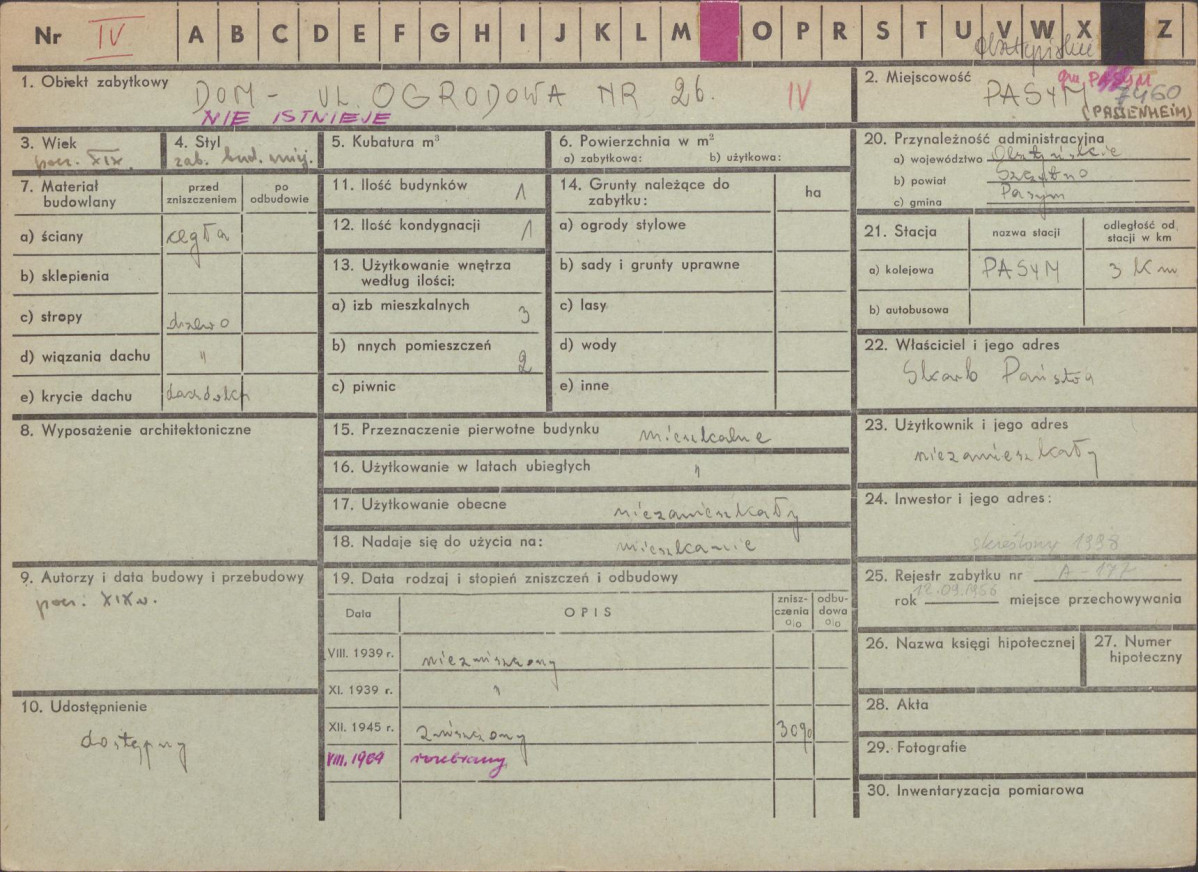 Nr IV A B C D E F G H I J K L M O P R S T U V W X Z
Olsztyńskie
1. Obiekt zabytkowy DOM - UL. OGRODOWA NR 26. IV
NIE ISTNIEJE
2. Miejscowość gm. PASYM
PASYM 7460
(PASSENHEIM)
3. Wiek
pocz. XIX
4. Styl
zab. bud. miej.
5. Kubatura m³
6. Powierzchnia w m²
a) zabytkowa: b) użytkowa:
7. Materiał budowlany
przed zniszczeniem
po odbudowie
a) ściany cegła
b) sklepienia
c) stropy drzewo
d) wiązania dachu "
e) krycie dachu
8. Wyposażenie architektoniczne
9. Autorzy i data budowy i przebudowy
pocz. XIX w.
10. Udostępnienie
dostępny
11. Ilość budynków 1
12. Ilość kondygnacji 1
13. Użytkowanie wnętrza
według ilości:
a) izb mieszkalnych 3
b) nnych pomieszczeń 2
c) piwnic
14. Grunty należące do
zabytku:
ha
a) ogrody stylowe
b) sady i grunty uprawne
c) lasy
d) wody
e) inne
15. Przeznaczenie pierwotne budynku mieszkalne
16. Użytkowanie w latach ubiegłych "
17. Użytkowanie obecne niezamieszkały
18. Nadaje się do użycia na: mieszkanie
19. Data rodzaj i stopień zniszczeń i odbudowy
Data OPIS znisz-czenia o/o odbu-dowa o/o
VIII. 1939 r. niezniszczony
XI. 1939 r. "
XII. 1945 r. zniszczony 30%
VIII. 1969 rozebrany
20. Przynależność administracyjna
a) województwo Olsztyńskie
b) powiat Szczytno
c) gmina Pasym
21. Stacja nazwa stacji odległość od stacji w km
a) kolejowa PASYM 3 km
b) autobusowa
22. Właściciel i jego adres
Skarb Państwa
23. Użytkownik i jego adres
niezamieszkały
24. Inwestor i jego adres:
skreślony 1998
25. Rejestr zabytku nr A-177
12.09.1956
rok miejsce przechowywania
26. Nazwa księgi hipotecznej
27. Numer
hipoteczny
28. Akta
29. Fotografie
30. Inwentaryzacja pomiarowa